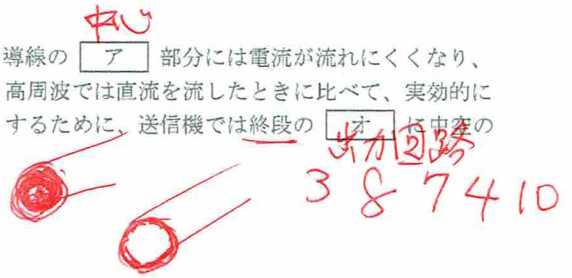 中心
導線の ア 部分には電流が流れにくくなり、
高周波では直流を流したときに比べて、実効的に
するために、送信機では終段の オ に中空の
出力回路
3 8 7 4 10